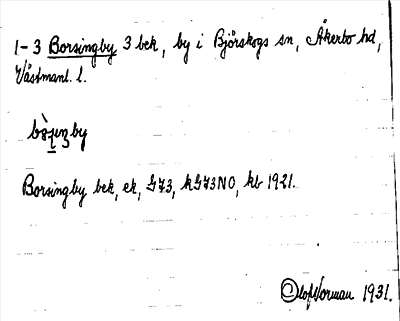 1-3 Borsingby 3 bek, by i Björskogs sn, Åkerbo hd,
Västmanl. l.
Borsingby bek, ek, G73, kG73NO, kb 1921.
Olof Norman 1931.